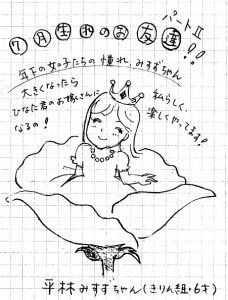 7月生れのお友達パートⅡ!!
年下の女の子たちの憧れ、みすずちゃん
大きくなったら
ひなた君のお嫁さんに
なるの!
私らしく、
楽しくやってます!
平林みすずちゃん(きりん組・6才)